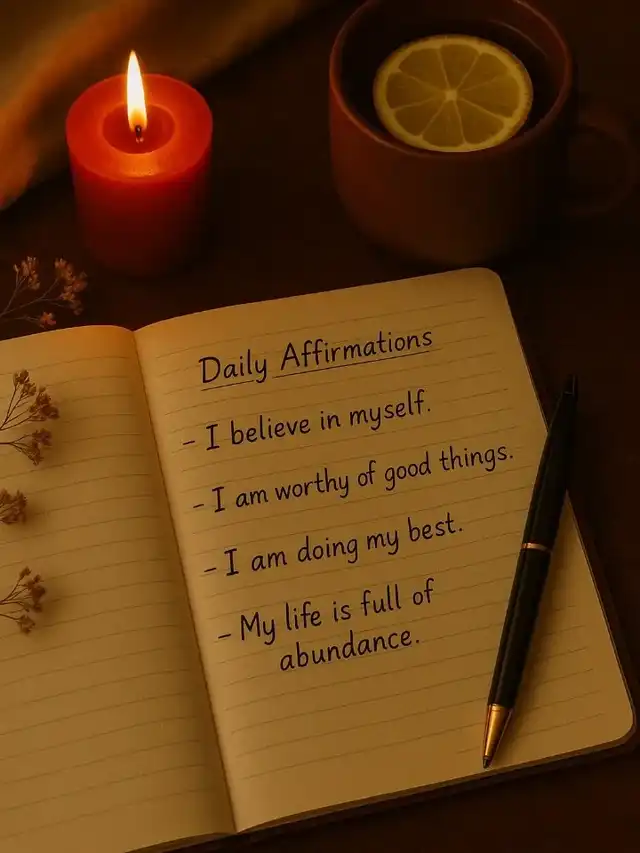 Daily Affirmations
- I believe in myself.
- I am worthy of good things.
- I am doing my best.
- My life is full of
abundance.